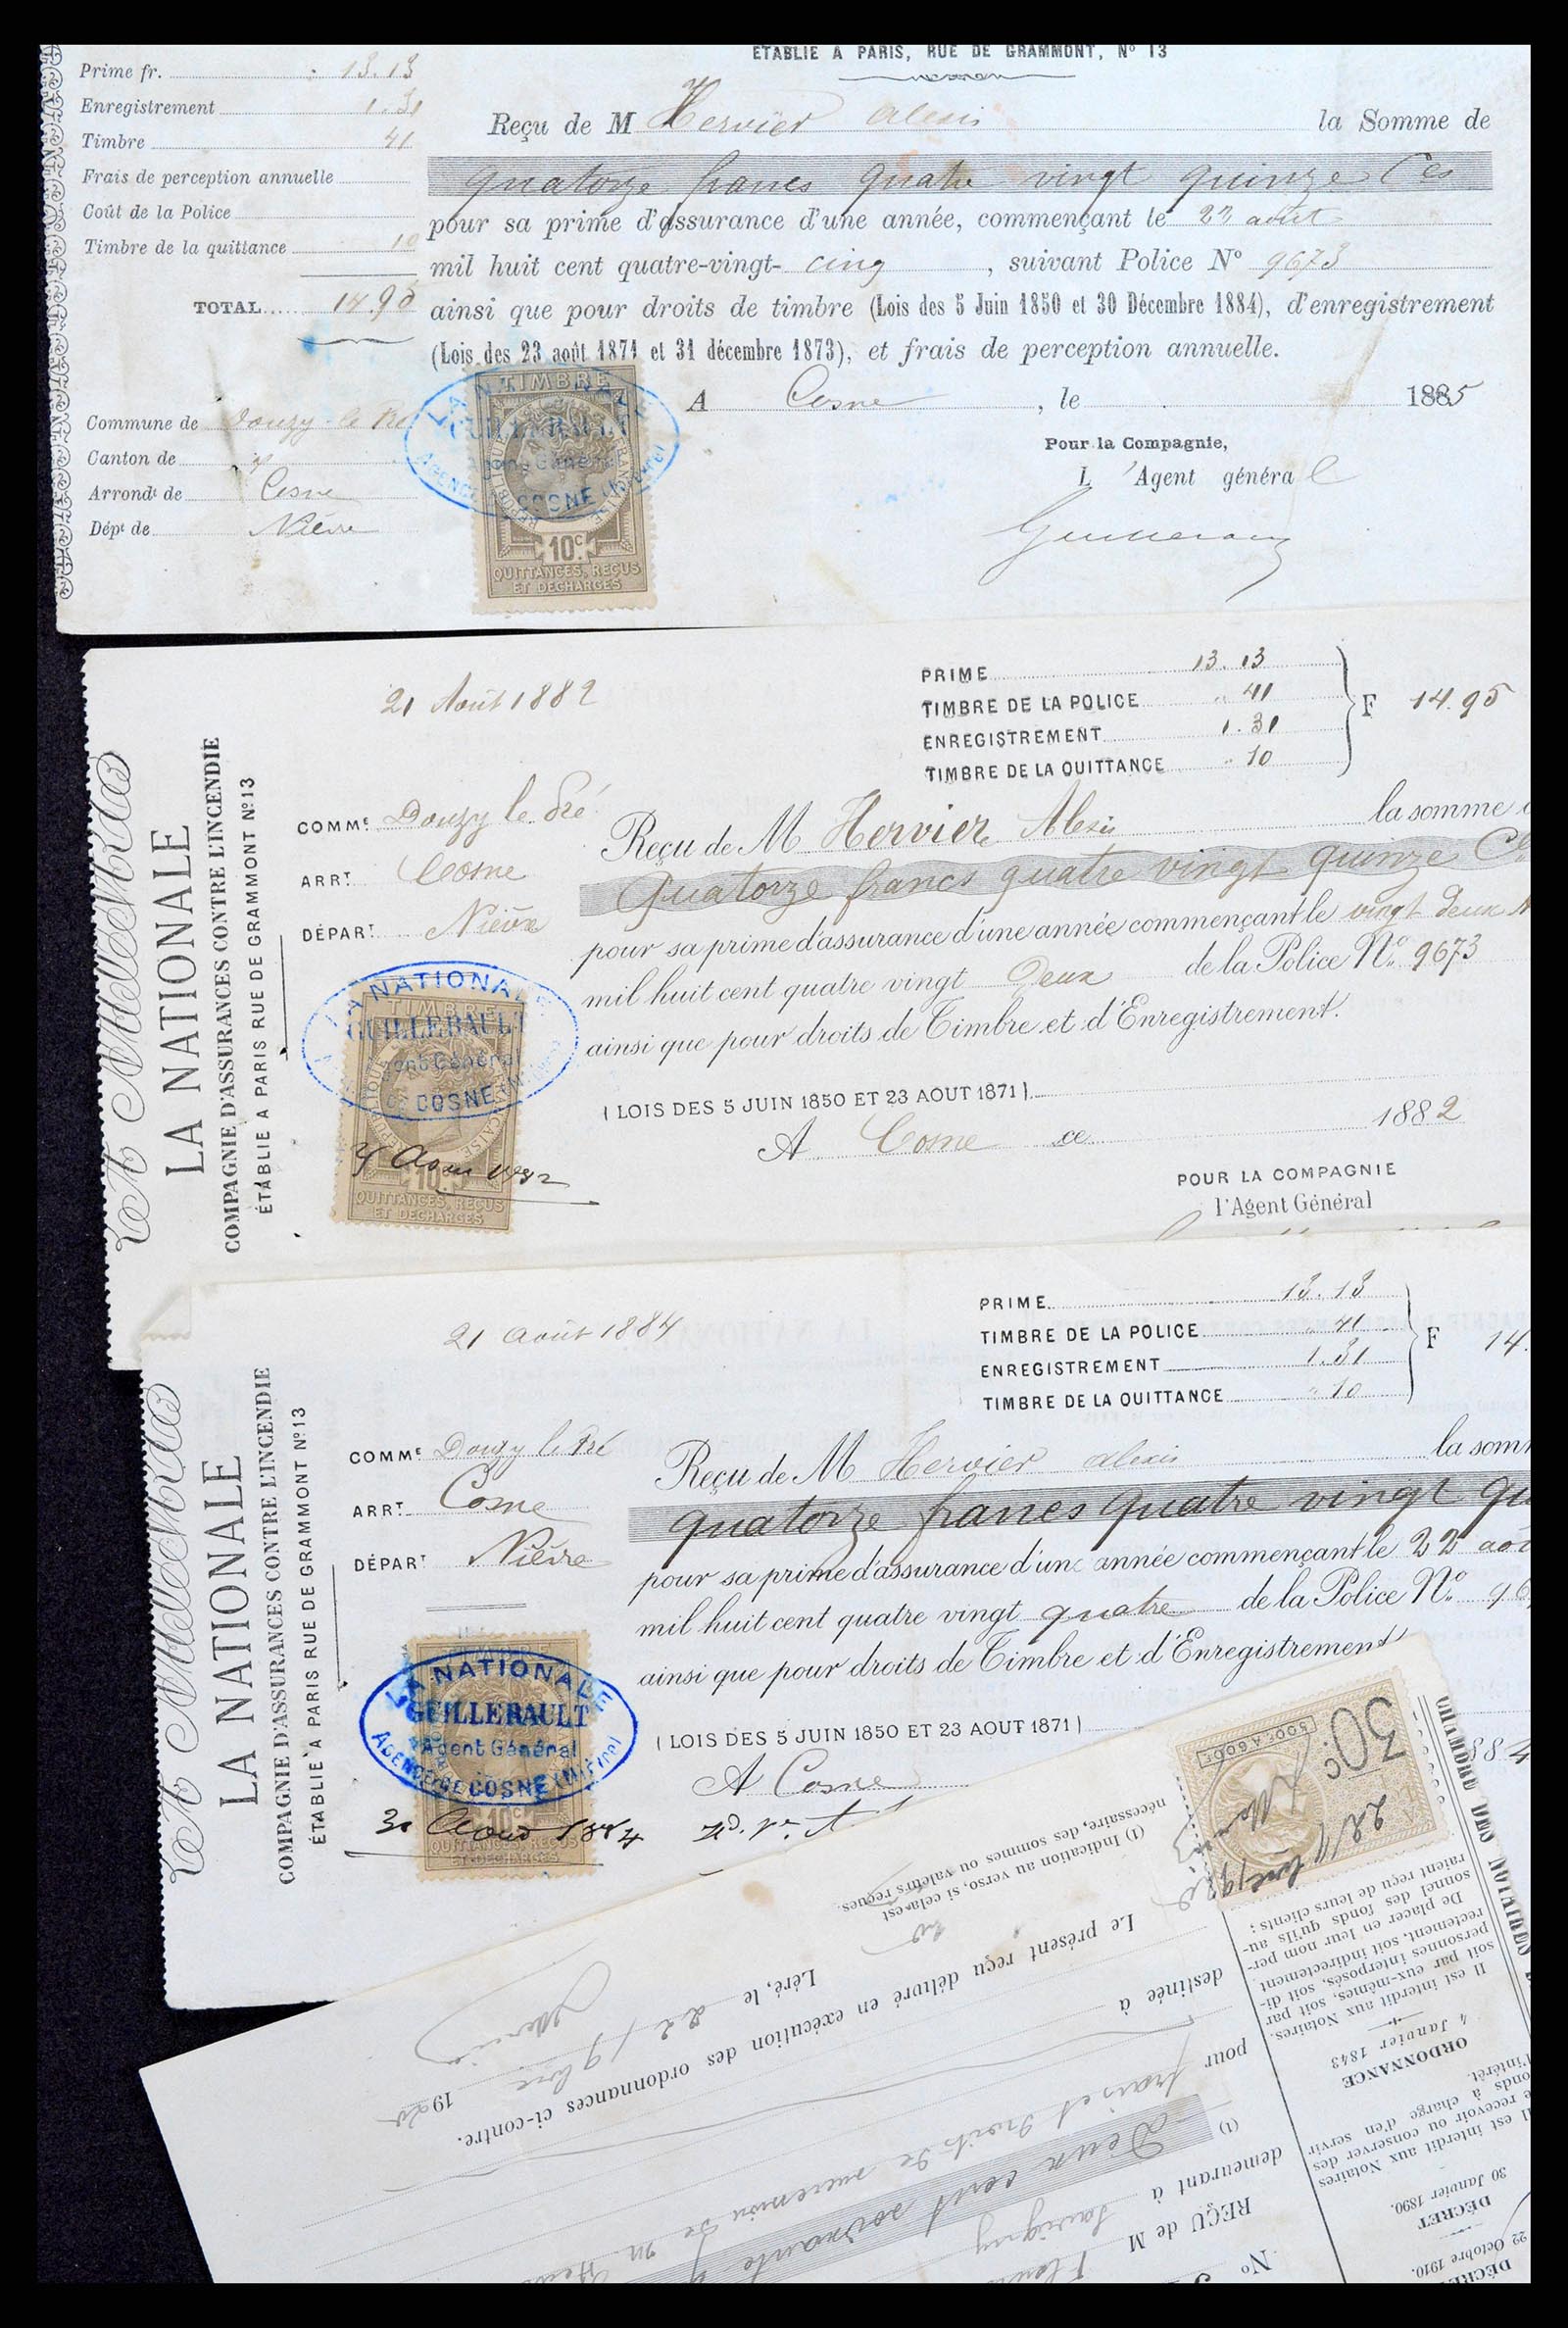 ÉTABLIE A PARIS, RUE DE GRAMMONT, Nº 13
Prime fr. 13.13
Enregistrement 1.31
Timbre 41
Frais de perception annuelle
Coût de la Police
Timbre de la quittance 10
TOTAL..... 14.95
Commune de Donzy-le Pré
Canton de
Arrondt de Cosne
Dépt de Nièvre
Reçu de M Hervier Alexis la Somme de
quatorze francs quatre vingt quinze Ces
pour sa prime d'assurance d'une année, commençant le 22 août
mil huit cent quatre-vingt- cinq , suivant Police Nº 9673
ainsi que pour droits de timbre (Lois des 5 Juin 1850 et 30 Décembre 1884), d'enregistrement
(Lois des 23 août 1871 et 31 décembre 1873), et frais de perception annuelle.
A Cosne , le 1885
Pour la Compagnie,
L 'Agent général
TIMBRE
RÉPUBLIQUE FRANÇAISE
10c
QUITTANCES, REÇUS
ET DÉCHARGES
LA NATIONALE
GUILLERAULT
Agent Général
AGENCE DE COSNE (Nièvre)
LA NATIONALE
COMPAGNIE D'ASSURANCES CONTRE L'INCENDIE
ÉTABLIE A PARIS RUE DE GRAMMONT Nº 13
21 Août 1882
PRIME 13.13
TIMBRE DE LA POLICE " 41
ENREGISTREMENT 1.31
TIMBRE DE LA QUITTANCE " 10
F 14.95
COMME Donzy le Pré
ARRT Cosne
DÉPART Nièvre
Reçu de M Hervier Alexis la somme
Quatorze francs quatre vingt quinze Ces
pour sa prime d'assurance d'une année commençant le vingt deux
mil huit cent quatre vingt Deux de la Police Nº 9673
ainsi que pour droits de Timbre et d'Enregistrement.
(LOIS DES 5 JUIN 1850 ET 23 AOUT 1871)
A Cosne ce 1882
POUR LA COMPAGNIE
l'Agent Général
LA NATIONALE
GUILLERAULT
Agent Général
COSNE
TIMBRE
10c
QUITTANCES, REÇUS
ET DÉCHARGES
LA NATIONALE
COMPAGNIE D'ASSURANCES CONTRE L'INCENDIE
ÉTABLIE A PARIS RUE DE GRAMMONT Nº 13
21 Août 1884
PRIME 13.13
TIMBRE DE LA POLICE " 41
ENREGISTREMENT 1.31
TIMBRE DE LA QUITTANCE " 10
F 14.
COMME Donzy le Pré
ARRT Cosne
DÉPART Nièvre
Reçu de M Hervier Alexis la som
quatorze francs quatre vingt qu
pour sa prime d'assurance d'une année commençant le 22 aoû
mil huit cent quatre vingt quatre de la Police Nº 96
ainsi que pour droits de Timbre et d'Enregistrement
(LOIS DES 5 JUIN 1850 ET 23 AOUT 1871)
884
A Cosne
LA NATIONALE
GUILLERAULT
Agent Général
AGENCE DE COSNE (Nièvre)
10c
QUITTANCES, REÇUS
ET DÉCHARGES
Août 1884
DÉCRET
22 Octobre 1910.
DÉCRET
30 Janvier 1890.
Il est interdit aux Notaires
de recevoir ou conserver des
fonds à charge d'en servir
l'intérêt.
ORDONNANCE
4 Janvier 1843
Il est interdit aux Notaires,
soit par eux-mêmes, soit par
personnes interposées, soit di-
rectement, soit indirectement
De placer en leur nom per-
sonnel des fonds qu'ils au-
raient reçu de leurs clients;
CHAMBRE DES NOTAIRES
Nº
REÇU de M
demeurant à Savigny
(1) Deux cent soixante
pour frais et droits de succession de M
destinée à
Le présent reçu délivré en exécution des ordonnances ci-contre.
Léré, le 22 9bre 1920
(1) Indication au verso, si cela est
nécessaire, des sommes ou valeurs reçues.
500F A 600F
30c